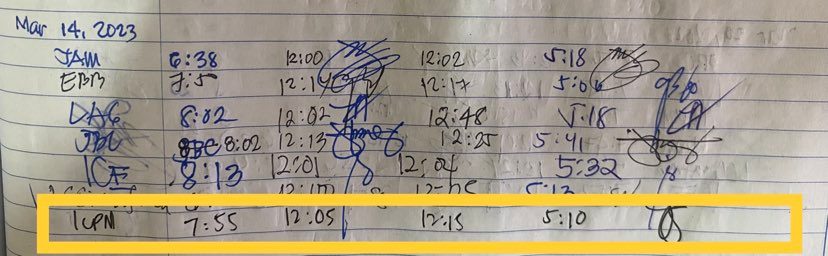 Mar 14, 2023
JAM 6:38 12:00 12:02 5:18
EBB 7:5 12:14 12:17 5:06
DAG 8:02 12:02 12:48 5:18
JBC 8:02 12:13 12:25 5:41
ICE 8:13 12:01 12:04 5:32
5:13
7:55 12:05 12:15 5:10